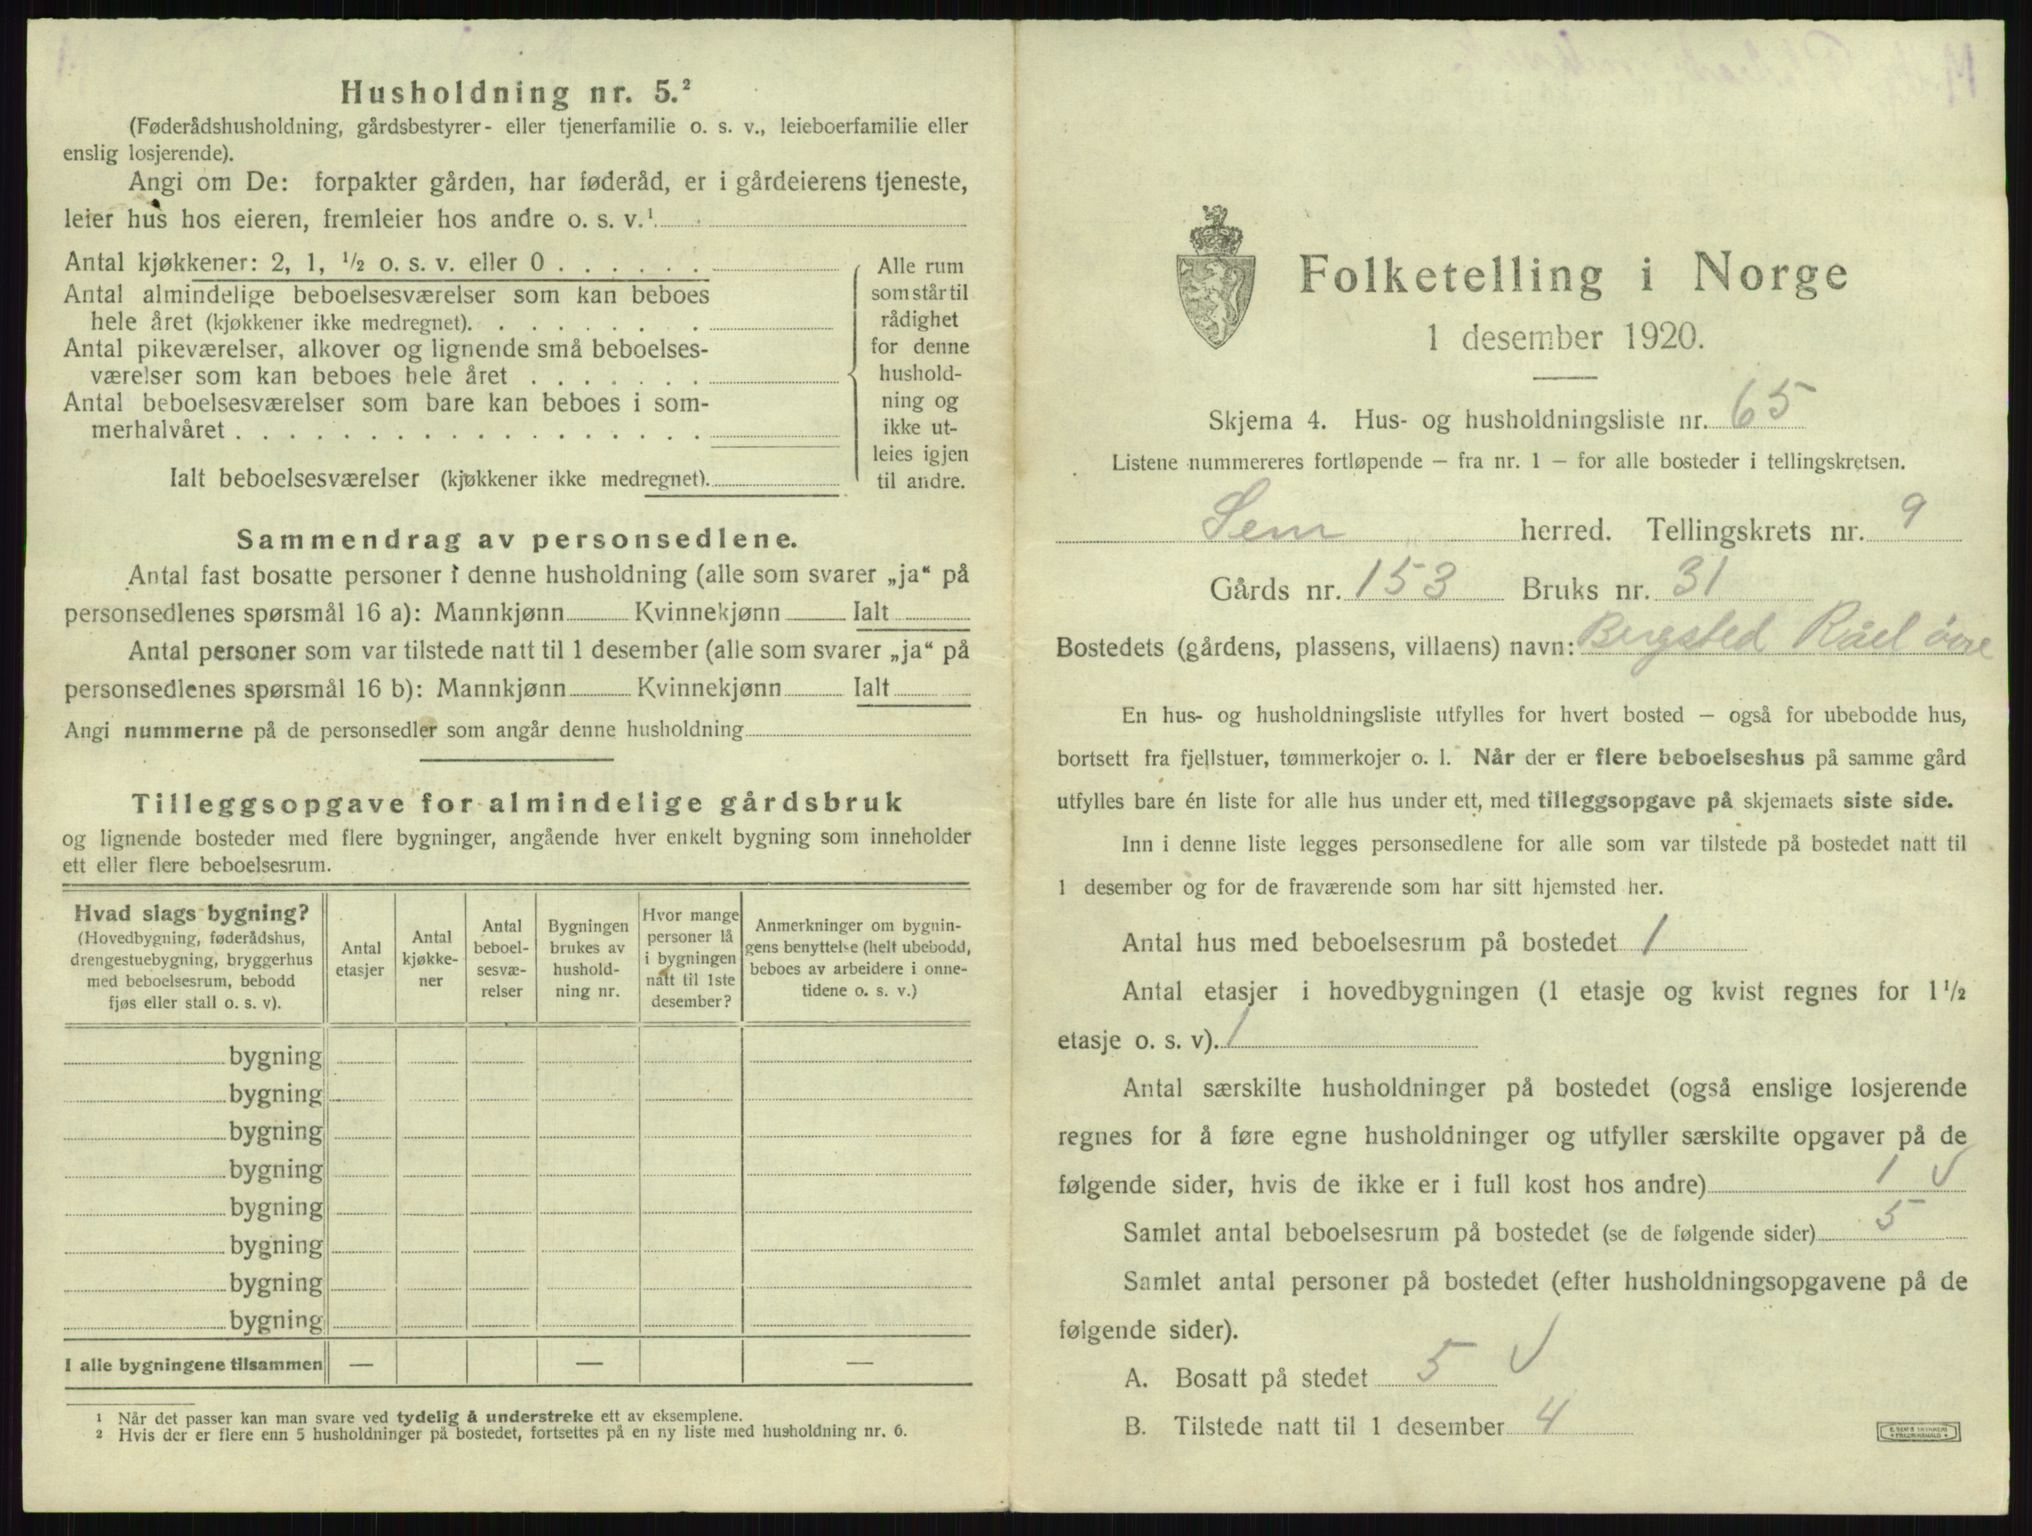 Husholdning nr. 5.²
(Føderådshusholdning, gårdsbestyrer- eller tjenerfamilie o. s. v., leieboerfamilie eller
enslig losjerende).
Angi om De: forpakter gården, har føderåd, er i gårdeierens tjeneste,
leier hus hos eieren, fremleier hos andre o. s. v.¹
Antal kjøkkener: 2, 1, ½ o. s. v. eller 0 . . . . . .
Antal almindelige beboelsesværelser som kan beboes
hele året (kjøkkener ikke medregnet). . . . . . . . .
Antal pikeværelser, alkover og lignende små beboelses-
værelser som kan beboes hele året . . . . . . .
Antal beboelsesværelser som bare kan beboes i som-
merhalvåret . . . . . . . . . . . . . . . . . .
Ialt beboelsesværelser (kjøkkener ikke medregnet).
Alle rum
som står til
rådighet
for denne
hushold-
ning og
ikke ut-
leies igjen
til andre.
Sammendrag av personsedlene.
Antal fast bosatte personer i denne husholdning (alle som svarer „ja“ på
personsedlenes spørsmål 16 a): Mannkjønn Kvinnekjønn Ialt
Antal personer som var tilstede natt til 1 desember (alle som svarer „ja“ på
personsedlenes spørsmål 16 b): Mannkjønn Kvinnekjønn Ialt
Angi nummerne på de personsedler som angår denne husholdning
Tilleggsopgave for almindelige gårdsbruk
og lignende bosteder med flere bygninger, angående hver enkelt bygning som inneholder
ett eller flere beboelsesrum.
Hvad slags bygning?
(Hovedbygning, føderådshus,
drengestuebygning, bryggerhus
med beboelsesrum, bebodd
fjøs eller stall o. s. v).
Antal
etasjer
Antal
kjøkke-
ner
Antal
beboel-
sesvæ-
relser
Bygningen
brukes av
hushold-
ning nr.
Hvor mange
personer lå
i bygningen
natt til 1ste
desember?
Anmerkninger om bygnin-
gens benyttelse (helt ubebodd,
beboes av arbeidere i onne-
tidene o. s. v.)
bygning
bygning
bygning
bygning
bygning
bygning
bygning
bygning
I alle bygningene tilsammen — — —
1 Når det passer kan man svare ved tydelig å understreke ett av eksemplene.
2 Hvis der er flere enn 5 husholdninger på bostedet, fortsettes på en ny liste med husholdning nr. 6.
Folketelling i Norge
1 desember 1920.
Skjema 4. Hus- og husholdningsliste nr. 65
Listene nummereres fortløpende – fra nr. 1 – for alle bosteder i tellingskretsen.
Sem herred. Tellingskrets nr. 9
Gårds nr. 153 Bruks nr. 31
Bostedets (gårdens, plassens, villaens) navn: Bergsted Råel övre
En hus- og husholdningsliste utfylles for hvert bosted – også for ubebodde hus,
bortsett fra fjellstuer, tømmerkojer o. l. Når der er flere beboelseshus på samme gård
utfylles bare én liste for alle hus under ett, med tilleggsopgave på skjemaets siste side.
Inn i denne liste legges personsedlene for alle som var tilstede på bostedet natt til
1 desember og for de fraværende som har sitt hjemsted her.
Antal hus med beboelsesrum på bostedet 1
Antal etasjer i hovedbygningen (1 etasje og kvist regnes for 1½
etasje o. s. v). 1
Antal særskilte husholdninger på bostedet (også enslige losjerende
regnes for å føre egne husholdninger og utfyller særskilte opgaver på de
følgende sider, hvis de ikke er i full kost hos andre) 1 √
Samlet antal beboelsesrum på bostedet (se de følgende sider) 5
Samlet antal personer på bostedet (efter husholdningsopgavene på de
følgende sider).
A. Bosatt på stedet 5 √
B. Tilstede natt til 1 desember 4